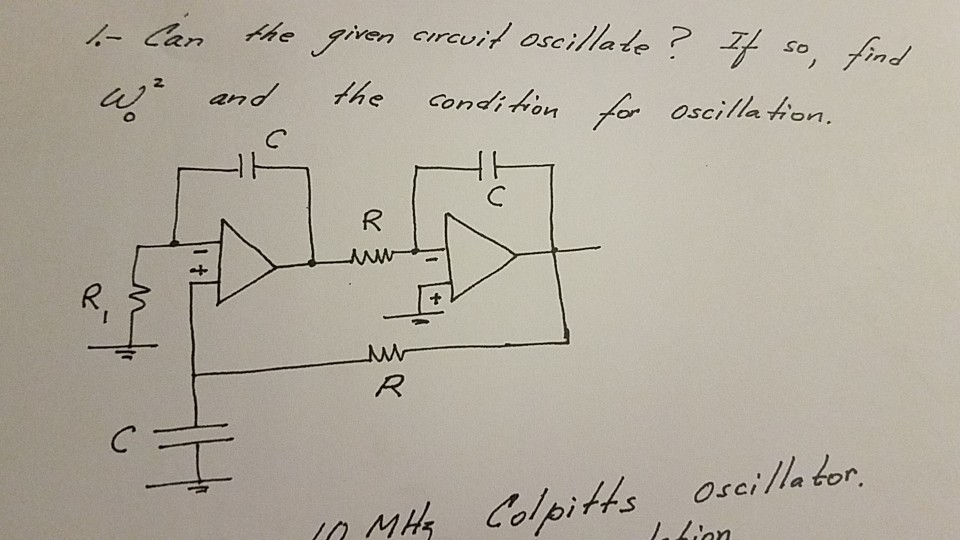 1.- Can the given circuit oscillate? If so, find
ω₀² and the condition for oscillation.
C
C
R
-
+
-
+
R₁
R
C
10 MHz Colpitts oscillator.